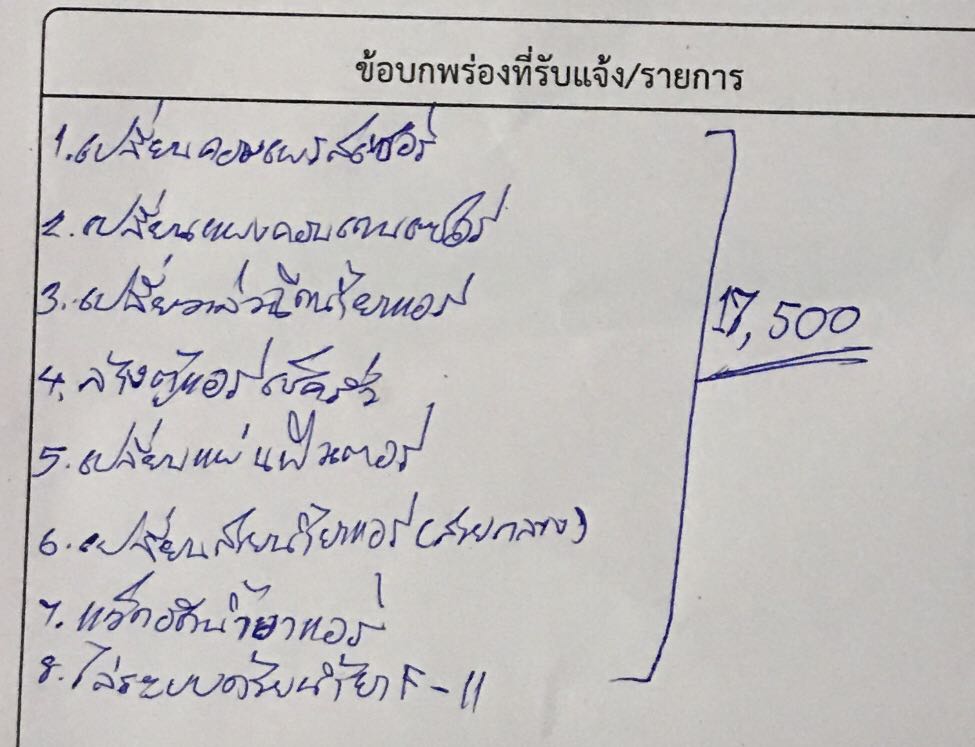 ข้อบกพร่องที่รับแจ้ง/รายการ
1.เปลี่ยนคอมเพรสเซอร์
2.เปลี่ยนแผงคอนเดนเซอร์
3.เปลี่ยวาล์วฉีดน้ำยาแอร์
17,500
4.ล้างตู้แอร์เช็ครั่ว
5.เปลี่ยนแผ่นฟิวเตอร์
6.เปลี่ยนสายน้ำยาแอร์(สายกลาง)
7. แว็คอัดน้ำยาแอร์
8.ไล่ระบบด้วยน้ำยา F-11